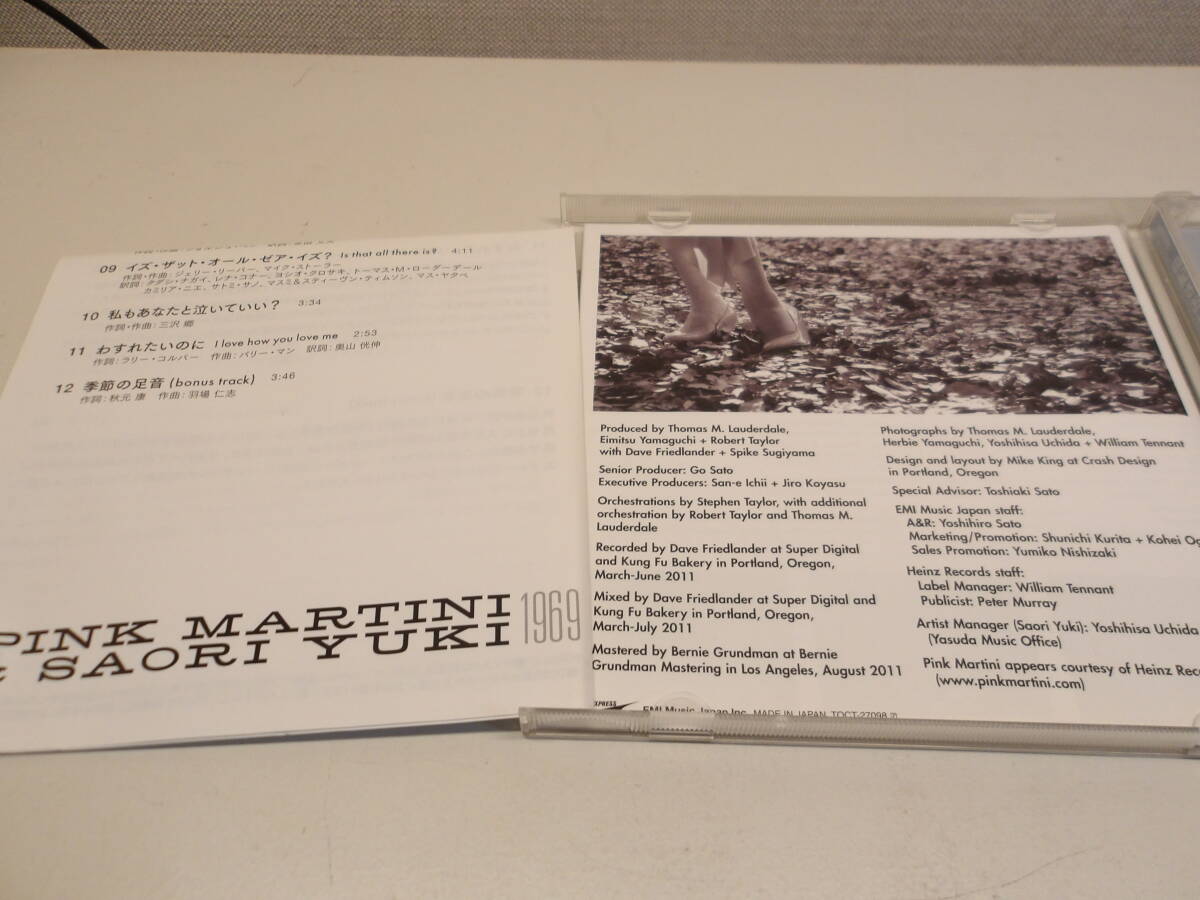 09 イズ・ザット・オール・ゼア・イズ? Is that all there is? 4:11
作詞・作曲:ジェリー・リーバー、マイク・ストーラー
訳詞:タダシ・ナガイ、レナ・コナー、ヨシオ・クロサキ、トーマス・M・ローダーデール
カミリア・ニエ、サトミ・サノ、マスミ&スティーヴン・ティムソン、マス・ヤタベ
10 私もあなたと泣いていい? 3:34
作詞・作曲:三沢 郷
11 わすれたいのに I love how you love me 2:53
作詞:ラリー・コルバー 作曲:バリー・マン 訳詞:奥山 侊伸
12 季節の足音 (bonus track) 3:46
作詞:秋元 康 作曲:羽場 仁志
PINK MARTINI
& SAORI YUKI 1969
Produced by Thomas M. Lauderdale,
Eimitsu Yamaguchi + Robert Taylor
with Dave Friedlander + Spike Sugiyama
Senior Producer: Go Sato
Executive Producers: San-e Ichii + Jiro Koyasu
Orchestrations by Stephen Taylor, with additional
orchestration by Robert Taylor and Thomas M.
Lauderdale
Recorded by Dave Friedlander at Super Digital
and Kung Fu Bakery in Portland, Oregon,
March-June 2011
Mixed by Dave Friedlander at Super Digital and
Kung Fu Bakery in Portland, Oregon,
March-July 2011
Mastered by Bernie Grundman at Bernie
Grundman Mastering in Los Angeles, August 2011
EXPRESS EMI Music Japan Inc. MADE IN JAPAN TOCT-27098
Photographs by Thomas M. Lauderdale,
Herbie Yamaguchi, Yoshihisa Uchida + William Tennant
Design and layout by Mike King at Crash Design
in Portland, Oregon
Special Advisor: Toshiaki Sato
EMI Music Japan staff:
A&R: Yoshihiro Sato
Marketing/Promotion: Shunichi Kurita + Kohei Og
Sales Promotion: Yumiko Nishizaki
Heinz Records staff:
Label Manager: William Tennant
Publicist: Peter Murray
Artist Manager (Saori Yuki): Yoshihisa Uchida
(Yasuda Music Office)
Pink Martini appears courtesy of Heinz Reco
(www.pinkmartini.com)